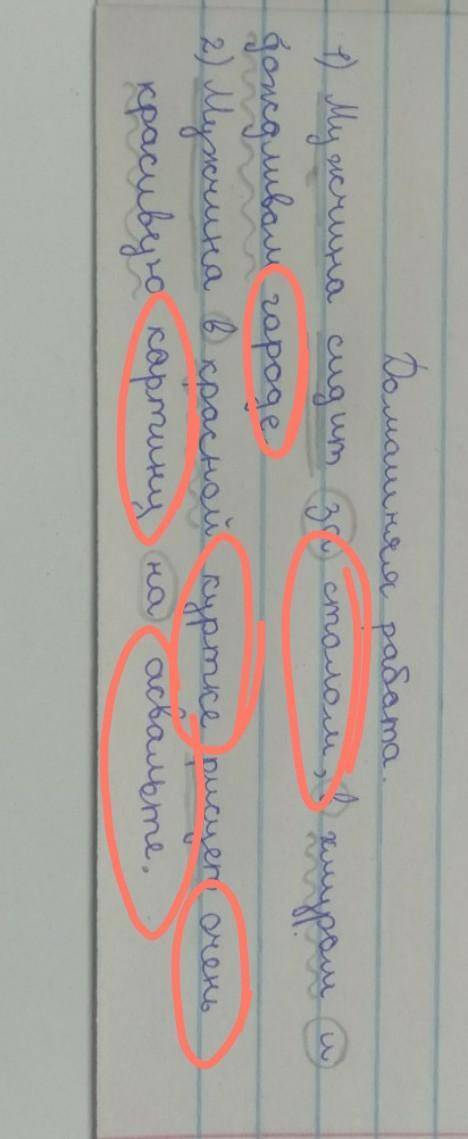 Домашняя работа.
1) Мужчина сидит за столом, в хмуром и
дождливом городе
2) Мужчина в красной куртке рисует очень
красивую картину на асвальте.